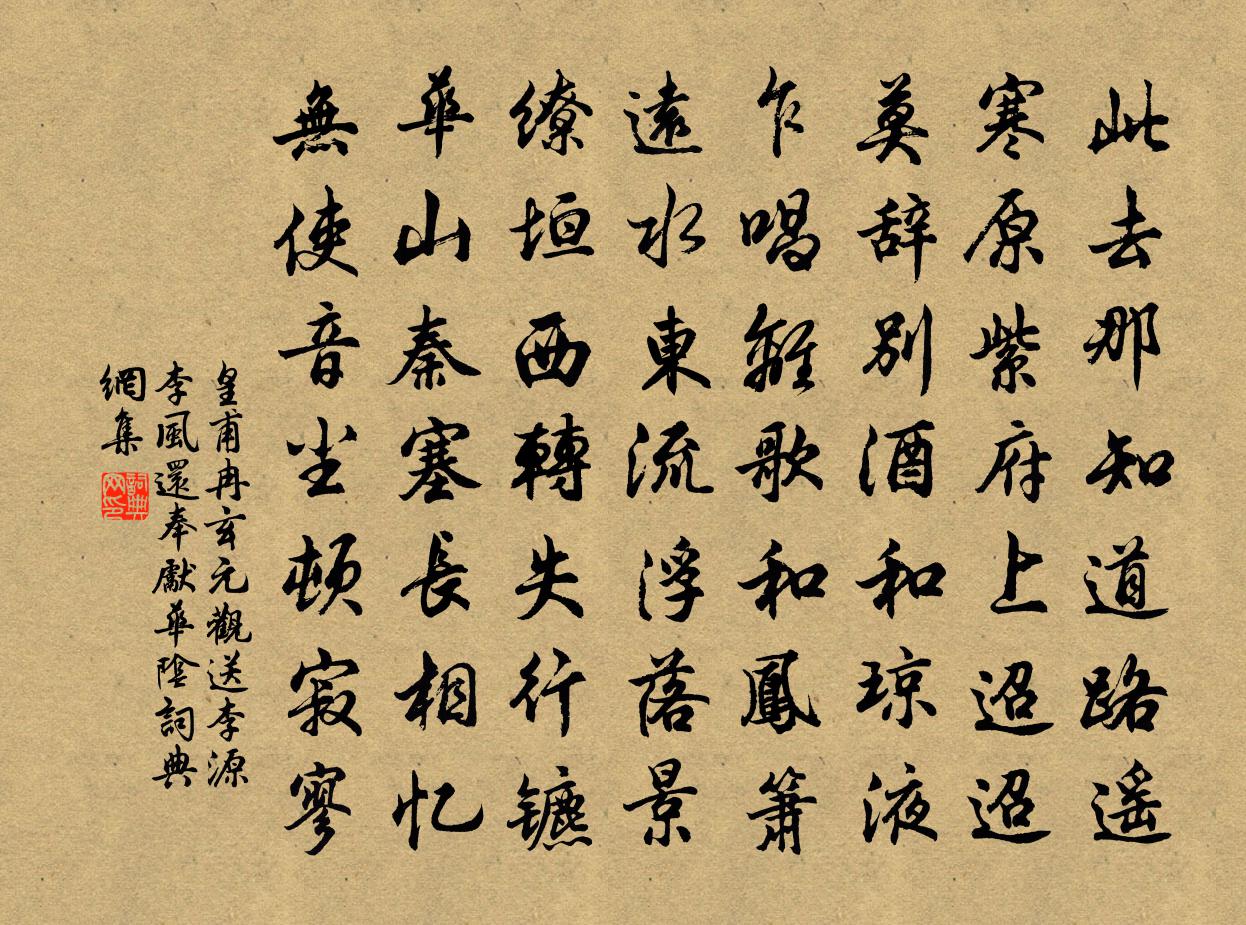 此去那知道路遥
寒原紫府上迢迢
莫辞別酒和琼液
乍唱離歌和鳳箫
遠水東流浮落景
缭垣西轉失行镳
華山秦塞長相忆
無使音尘頓寂寥
皇甫冉玄元觀送李源
李風還奉獻華陰詞典
網集
詞典
网印